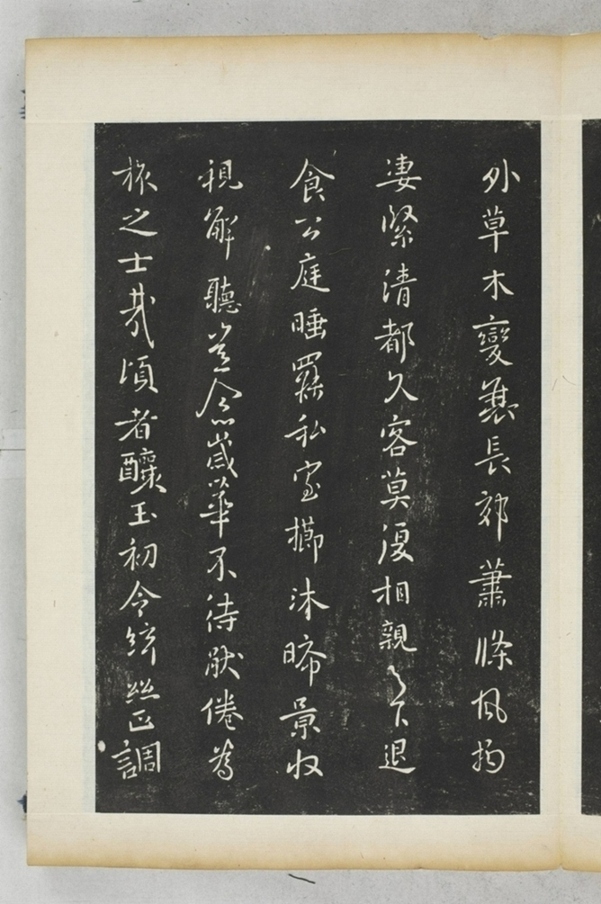 外草木變衰長郊蕭條風物
凄緊清都久客莫復相親足下退
食公庭睡私室櫛沐晞景收
視解聽豈念歲華不待猒倦為
旅之士哉頃者釀玉初令絲正調